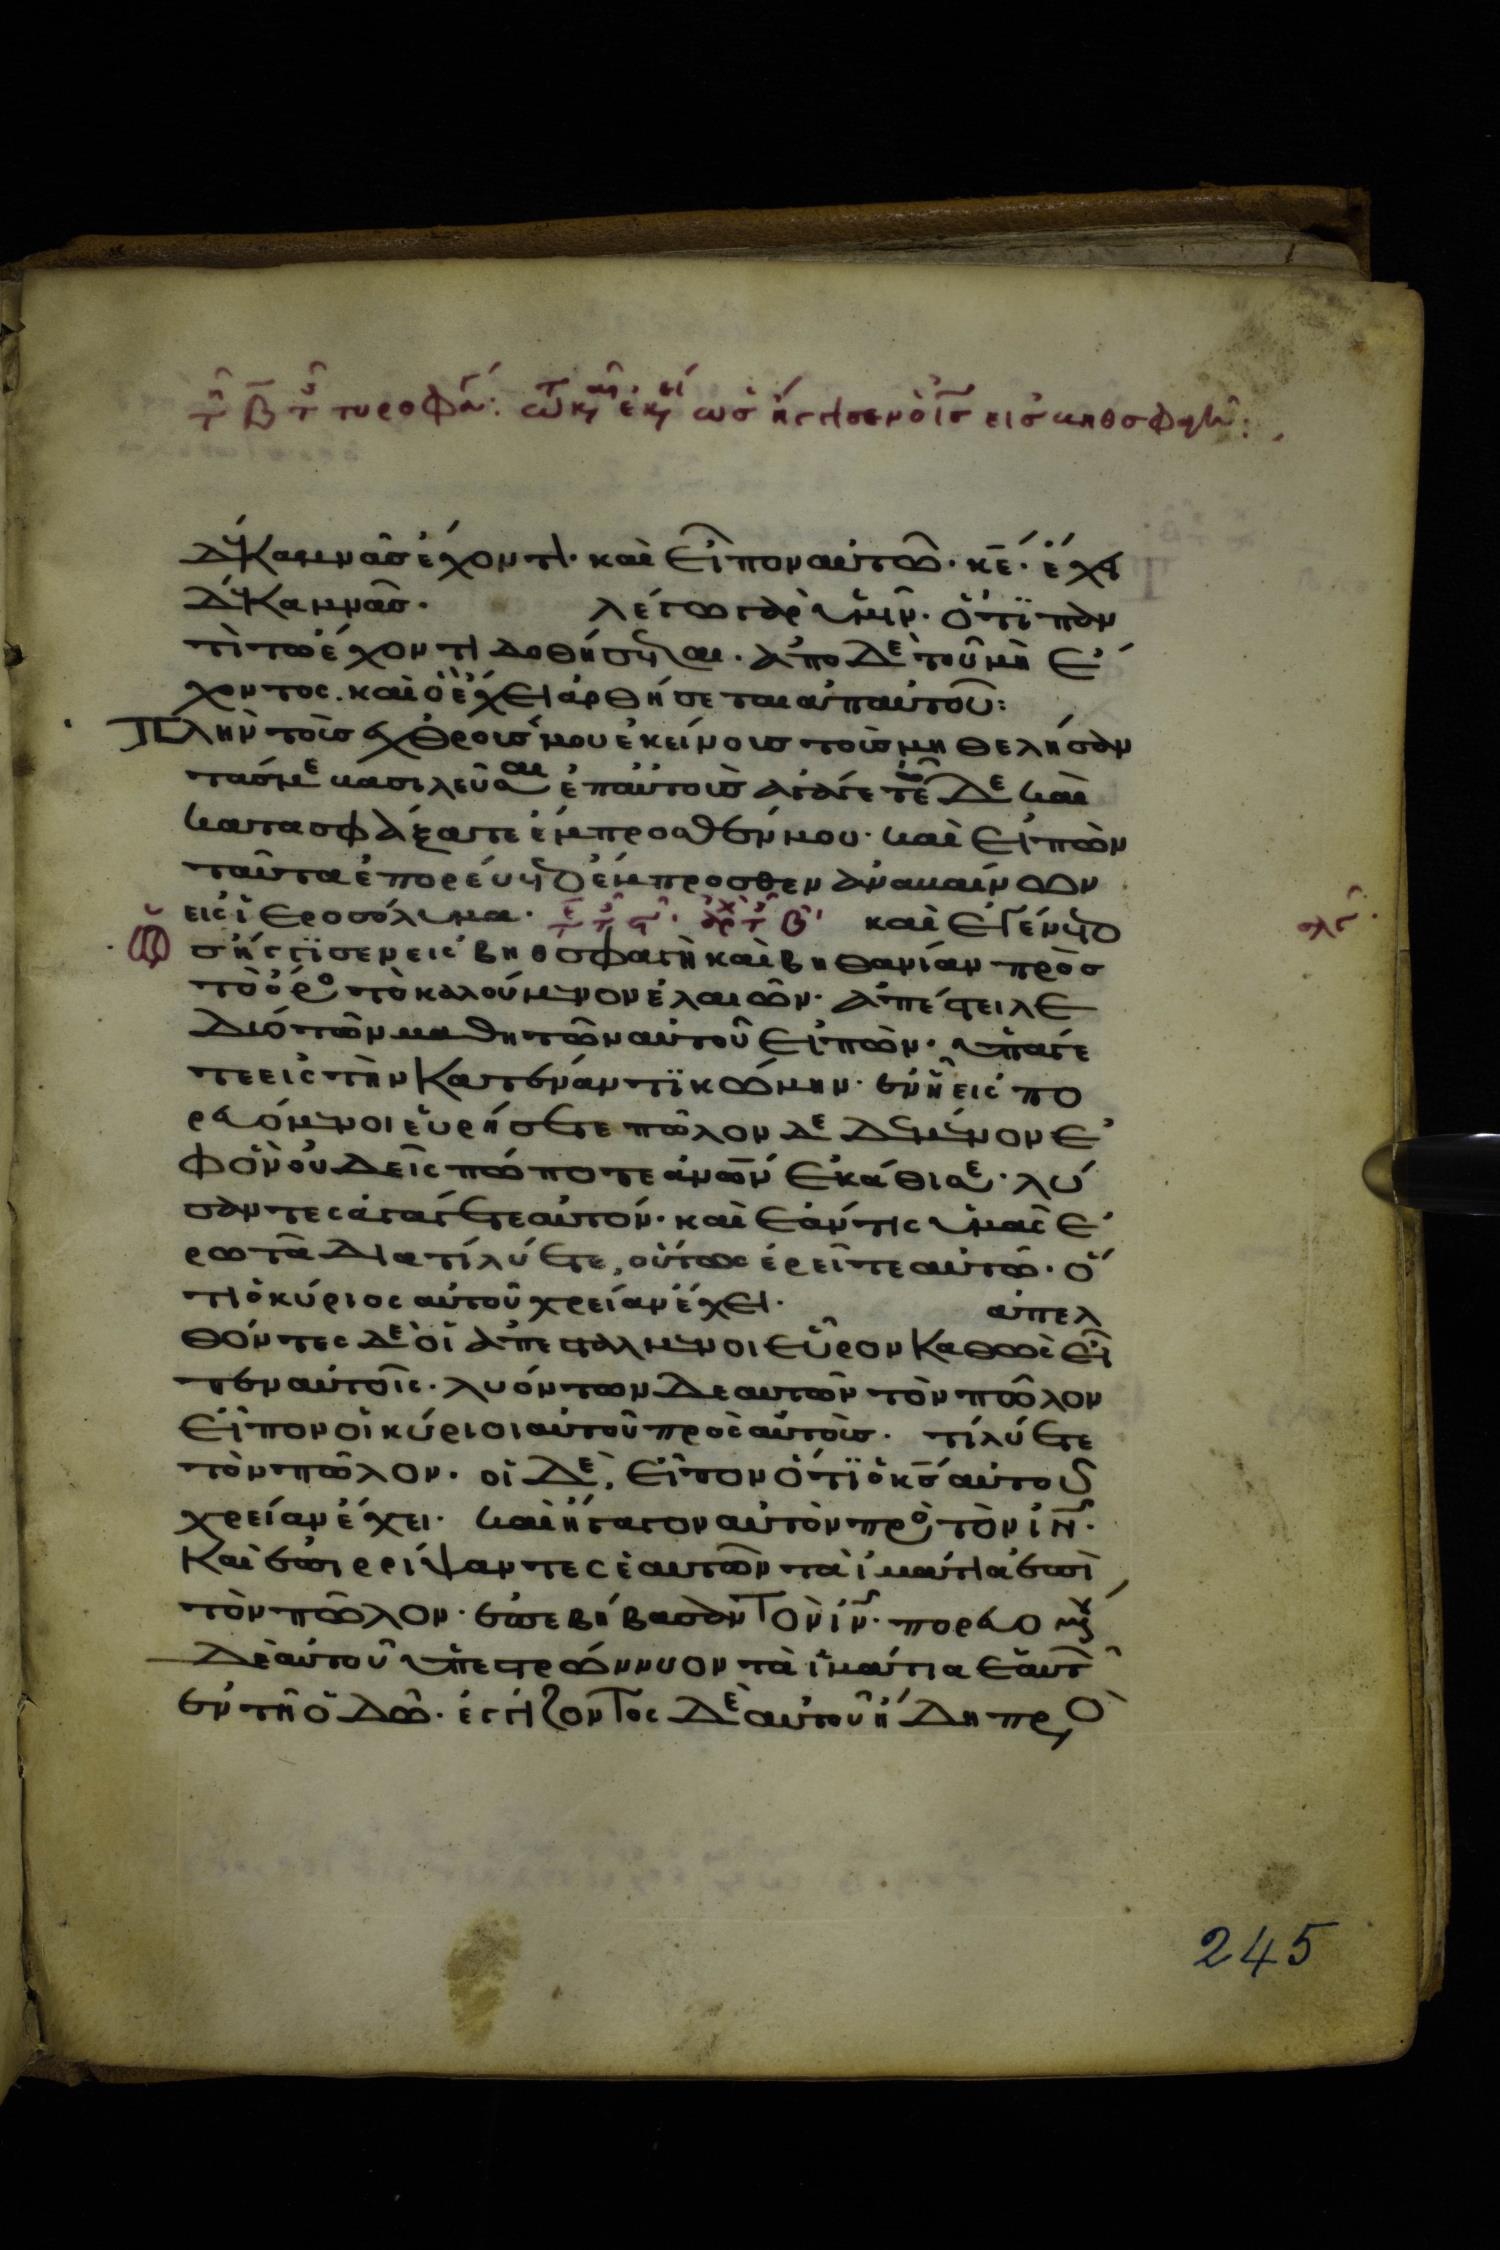 τῇ β τῆς τυροφά: τῷ καιρῷ ἐκείνῳ ὡς ἤγγισεν ὁ ἰς εἰς βηθσφαγῆ:
δέκα μνᾶς ἔχοντι· καὶ εἶπον αὐτῶ· κε· ἔχει
δέκα μνᾶς· λέγω γὰρ ὑμῖν· ὅτι παν
τὶ τῶ ἔχοντι δοθήσεται· ἀπο δὲ τοῦ μὴ ἔ
χοντος· καὶ ὃ ἔχει ἀρθήσεται ἀπ αὐτοῦ:
Πλὴν τοὺς ἐχθρούς μου ἐκείνους τοὺς μη θελήσαν
τάς με βασιλεῦσαι ἐπ αὐτοὺς ἀγάγετε ὧδε καὶ
κατασφάξατε ἔμπροσθέν μου· καὶ εἰπὼν
ταῦτα ἐπορεύετο ἔμπροσθεν ἀναβαίνων
εἰς ἱεροσόλυμα· καὶ ἐγένετο
ὡς ἤγγισεν εἰς βηθσφαγὴ καὶ βηθανίαν πρὸς
τὸ ὄρος τὸ καλούμενον ἐλαιῶν· ἀπέστειλε
δύο τῶν μαθητῶν αὐτοῦ εἰπὼν· ὑπάγε
τε εἰς τὴν κατέναντι κώμην· ἐν ῇ εἰσπο
ρευόμενοι εὑρήσετε πῶλον δεδεμένον ἐ
φ ὃν οὐδεὶς πώποτε ἀνων ἐκάθισε· λύ
σαντες ἀγάγετε αὐτόν· καὶ ἐάν τις ὑμας ἐ
ρωτᾶ διατί λύετε, οὕτως ἐρεῖτε αὐτῶ· ὅ
τι ὁ κύριος αὐτοῦ χρείαν ἔχει· ἀπελ
θόντες δὲ οἱ ἀπεσταλμένοι εὗρον καθὼς εἶ
πεν αὐτοῖς· λυόντων δε αὐτῶν τὸν πῶλον
εἶπον οἱ κύριοι αὐτοῦ πρὸς αὐτοὺς· τί λύετε
τὸν πῶλον· οἱ δὲ, εἶπον ὅτι ὁ κς αὐτοῦ
χρείαν ἔχει· καὶ ἤγαγον αὐτὸν πρὸς τὸν ιν·
Καὶ ἐπιρρίψαντες ἑαυτῶν τὰ ἱμάτια ἐπὶ
τὸν πῶλον· ἐπεβίβασαν τὸν ιν· πορευομέ
δὲ αὐτοῦ ὑπεστρώννυον τὰ ἱμάτια ἑαυτ
ἐν τῇ ὁδῶ· ἐγγίζοντος δὲ αὐτοῦ ἤδη πρὸ
245